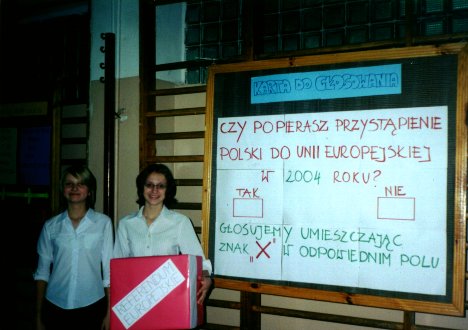 KARTA DO GŁOSOWANIA
CZY POPIERASZ PRZYSTĄPIENIE
POLSKI DO UNII EUROPEJSKIEJ
W 2004 ROKU?
TAK NIE
GŁOSUJEMY UMIESZCZAJĄC
ZNAK „X” W ODPOWIEDNIM POLU
REFERENDUM
EUROPEJSKIE